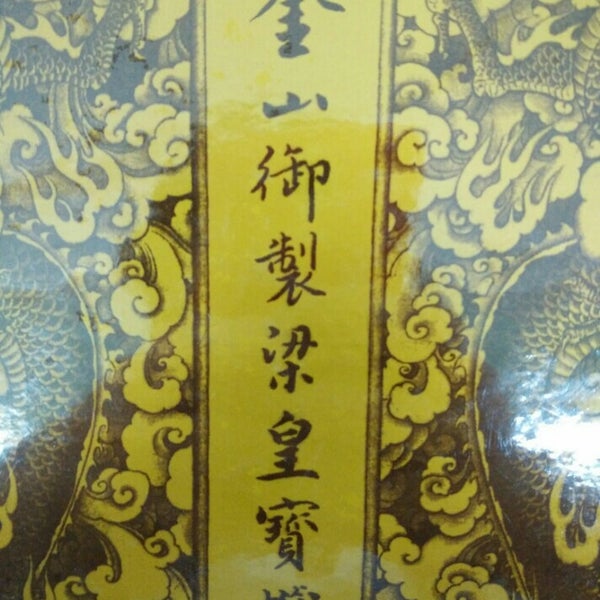 金山御製梁皇寶懺